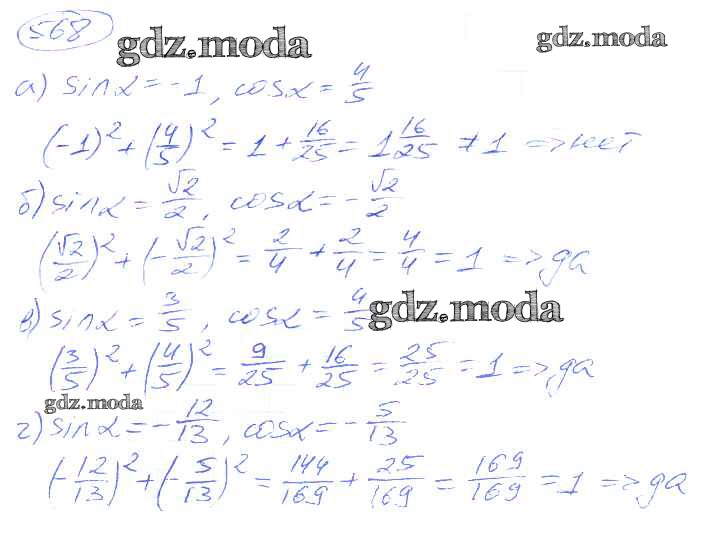 568
gdz.moda gdz.moda
а) sinα = -1, cosα = 4/5
(-1)² + (4/5)² = 1 + 16/25 = 1 16/25 ≠ 1 => нет
б) sinα = √2/2, cosα = -√2/2
(√2/2)² + (-√2/2)² = 2/4 + 2/4 = 4/4 = 1 => да
в) sinα = 3/5, cosα = 4/5
gdz.moda
(3/5)² + (4/5)² = 9/25 + 16/25 = 25/25 = 1 => да
gdz.moda
г) sinα = -12/13, cosα = -5/13
(-12/13)² + (-5/13)² = 144/169 + 25/169 = 169/169 = 1 => да